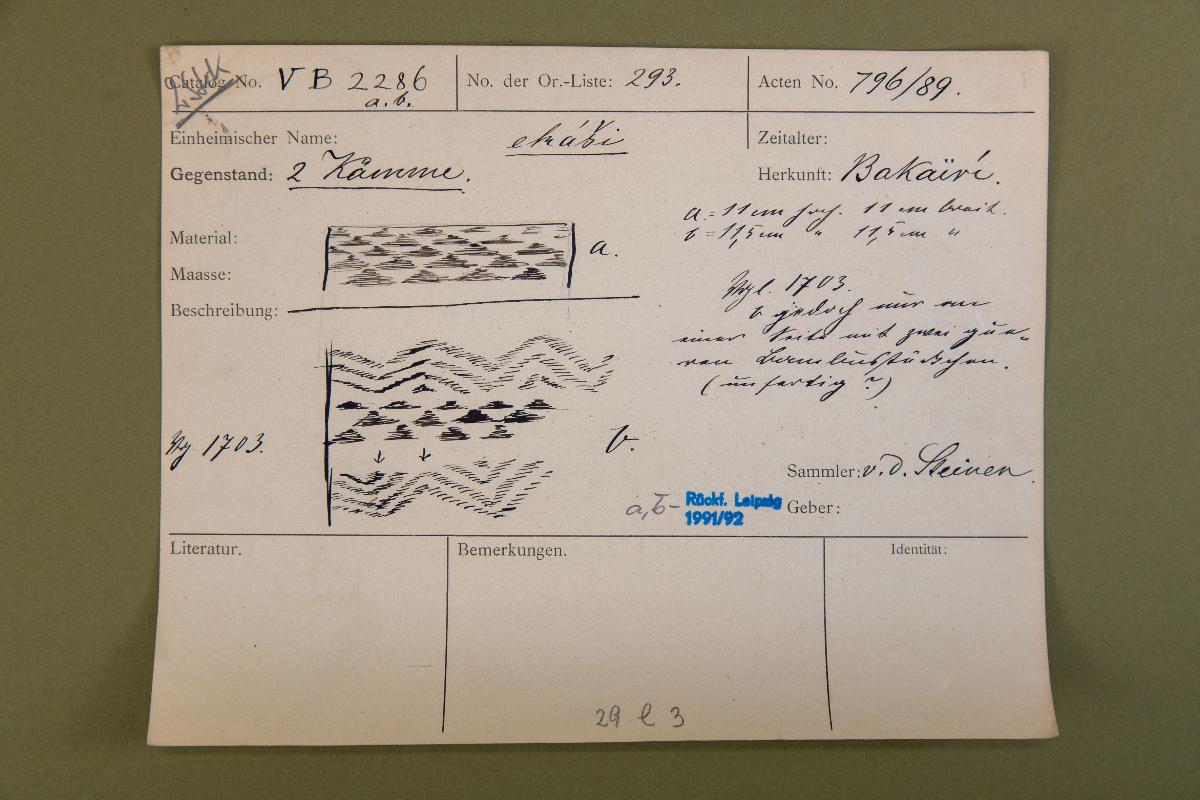 Catalog No. V B 2286 No. der Or.-Liste: 293. Acten No. 796/89.
a. b.
Einheimischer Name: Zeitalter:
Gegenstand: 2 Kämme. Herkunft: Bakaïrí.
a = 11 cm hoch. 11 cm breit.
b = 11,5 cm " 11,5 cm "
Material: a.
Maasse:
Beschreibung:
Vgl. 1703.
b jedoch nur an
einer Seite mit zwei que-
ren Bambusstückchen.
(unfertig?)
Vgl. 1703. b.
Sammler: v. d. Steinen
a, b – Rückf. Leipzig
1991/92
Geber:
Literatur. Bemerkungen. Identität:
29 e 3